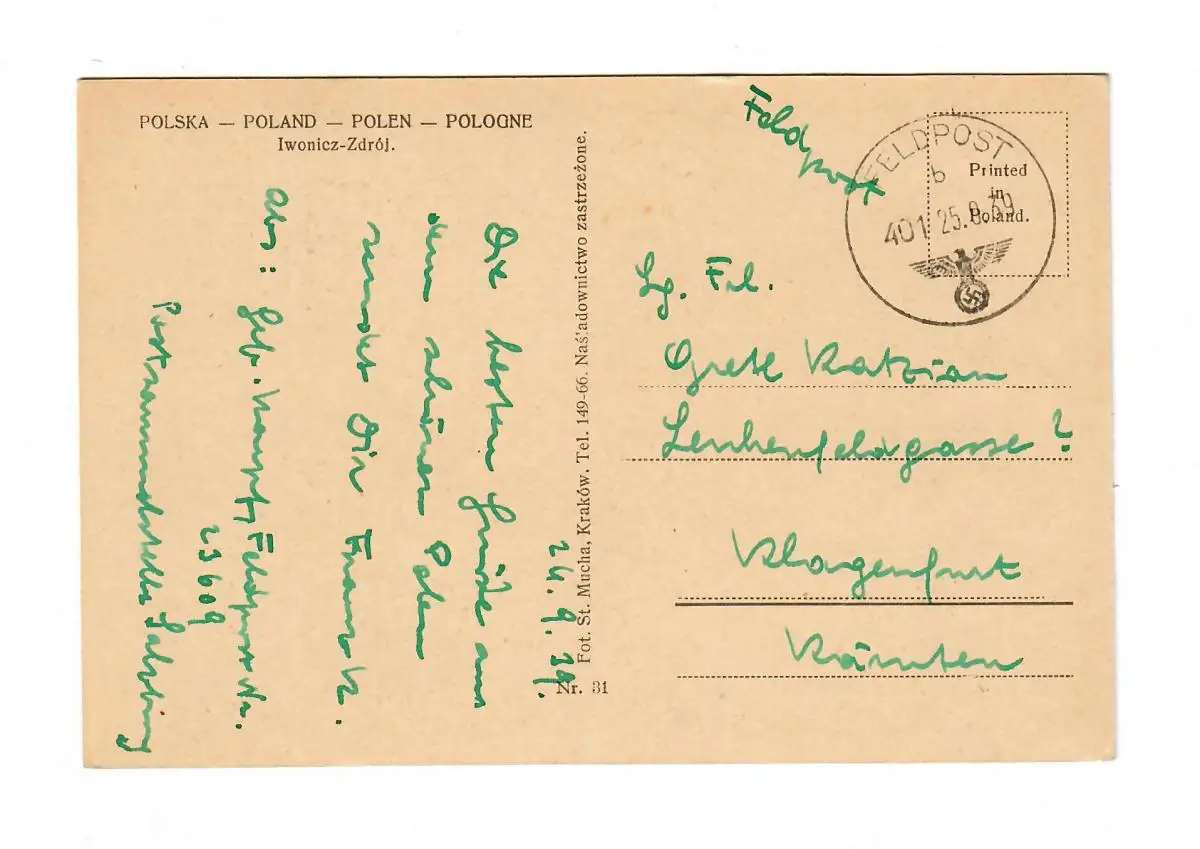 POLSKA — POLAND — POLEN — POLOGNE
Iwonicz-Zdrój.
24. 9. 39.
Die besten Grüße aus
dem schönen Polen
sendet Dir Franz K.
Abs: Feldpost Nr.
23609
Postsammelstelle Salzburg
Fot. St. Mucha, Kraków. Tel. 149-66. Naśladownictwo zastrzeżone.
Nr. 31
Feldpost
FELDPOST
b
401 25.9.39
Printed
in
Poland.
Frl.
Gretl Katzian
Lerchenfeldgasse ?
Klagenfurt
Kärnten